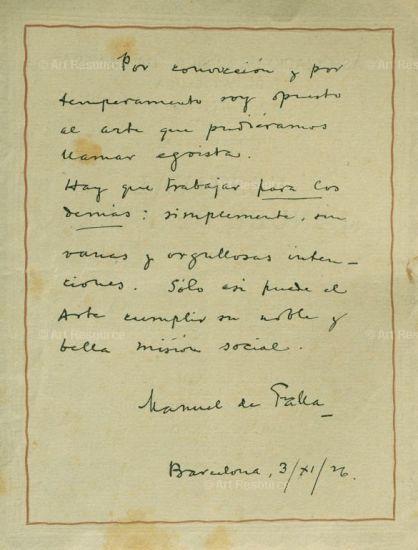 Por convicción y por
temperamento soy opuesto
al arte que pudiéramos
llamar egoista.
Hay que trabajar para los
demás: simplemente, sin
vanas y orgullosas inten-
ciones. Sólo así puede el
Arte cumplir su noble y
bella misión social.
Manuel de Falla
Barcelona, 3/XI/26.
© Art Resource
© Art Resource
© Art Resource
© Art Resource
© Art Resource